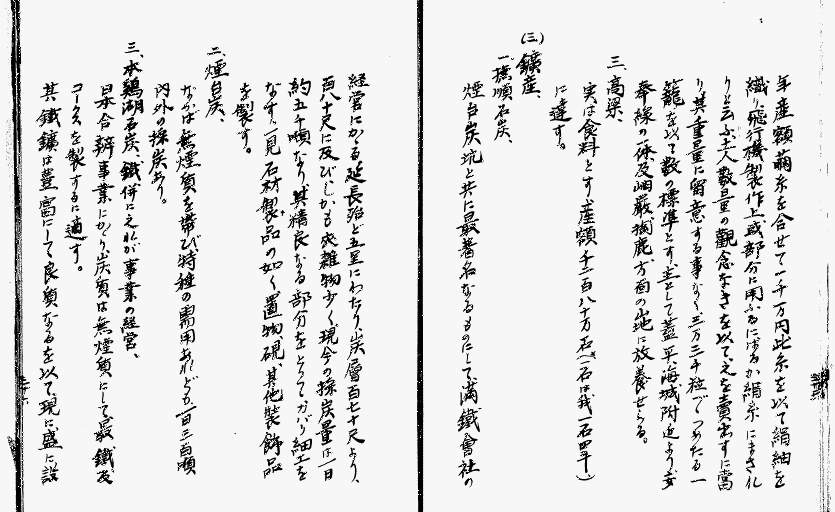 年産額繭糸を合せて一千万円此糸を以て絹紬を
織り飛行機製作上或部分に用ふるにはるか絹糸にまされ
りと云ふ土人数量の観念なきを以て之を賣出すに當
り其重量に留意する事なく三万三千粒でつめたる一
籠を以て数の標準とす主として蓋平海城附近より安
奉線の一体及岫巖掏鹿方面の山地に放養せらる。
三、高粱、
実は食料とす産額千二百八十万石(一石は我一石四斗)
に達す。
(三)鑛産、
一撫順石炭、
煙台炭坑と共に最著名なるものにして満鐵會社の
経営にかゝる延長殆ど五里にわたり、炭層百七十尺より、
百八十尺に及びしかも夾雑物少く現今の採炭量は一日
約五千噸なり、其精良なる部分をとってガバリ細工を
なす、一見石材製品の如く置物、硯、其他装飾品
を製す。
二、煙台炭、
なかは無煙質を帯び特種の需用あれども一日三百噸
内外の採炭あり。
三、本鶏湖石炭、鐵、併に之れが事業の経営、
日本合辨事業にかゝり、炭質は無煙質にして最鐵及
コークスを製するに適す。
其鐵鑛は豊富にして良質なるを以て現に盛に設